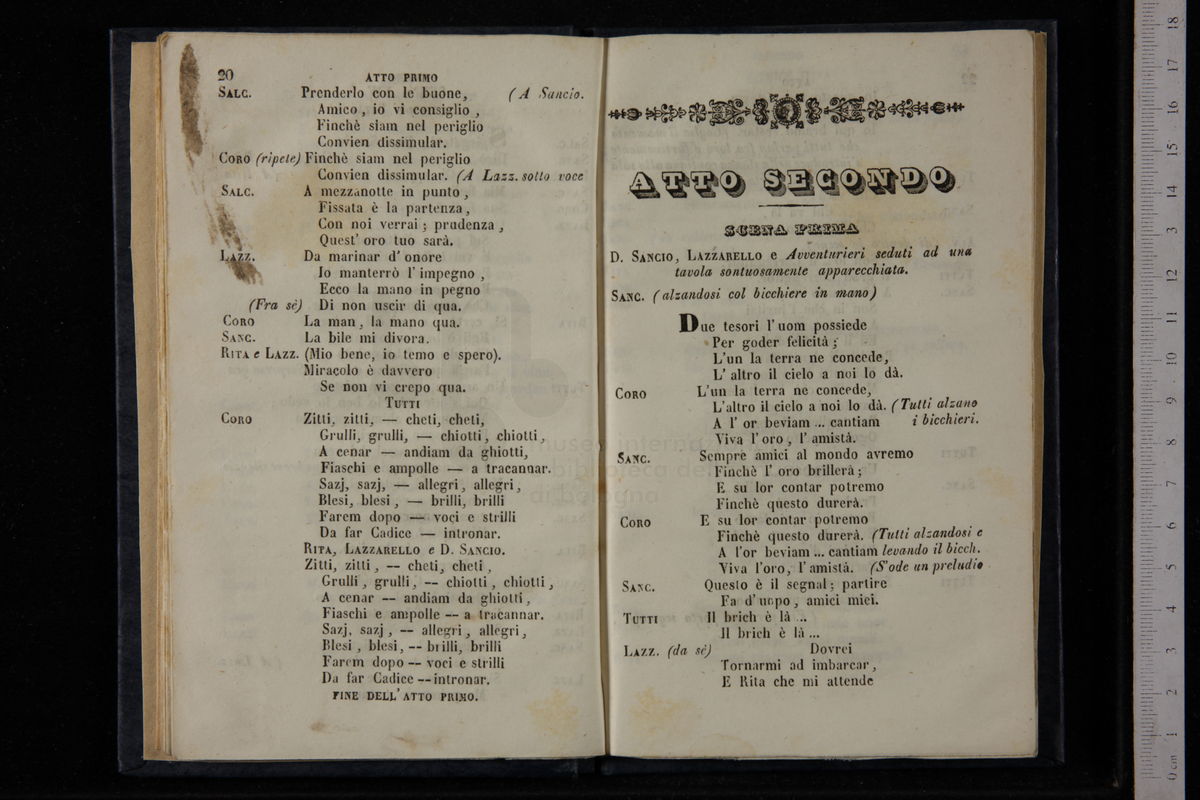 20 ATTO PRIMO
SALC. Prenderlo con le buone, (A Sancio.
Amico, io vi consiglio,
Finchè siam nel periglio
Convien dissimular.
CORO (ripete) Finchè siam nel periglio
Convien dissimular. (A Lazz. sotto voce
SALC. A mezzanotte in punto,
Fissata è la partenza,
Con noi verrai; prudenza,
Quest' oro tuo sarà.
LAZZ. Da marinar d' onore
Io manterrò l' impegno,
Ecco la mano in pegno
(Fra sè) Di non uscir di qua.
CORO La man, la mano qua.
SANC. La bile mi divora.
RITA e LAZZ. (Mio bene, io temo e spero).
Miracolo è davvero
Se non vi crepo qua.
TUTTI
CORO Zitti, zitti, — cheti, cheti,
Grulli, grulli, — chiotti, chiotti,
A cenar — andiam da ghiotti,
Fiaschi e ampolle — a tracannar.
Sazj, sazj, — allegri, allegri,
Blesi, blesi, — brilli, brilli
Farem dopo — voci e strilli
Da far Cadice — intronar.
RITA, LAZZARELLO e D. SANCIO.
Zitti, zitti, — cheti, cheti,
Grulli, grulli, — chiotti, chiotti,
A cenar — andiam da ghiotti,
Fiaschi e ampolle — a tracannar.
Sazj, sazj, — allegri, allegri,
Blesi, blesi, — brilli, brilli
Farem dopo — voci e strilli
Da far Cadice — intronar.
FINE DELL'ATTO PRIMO.
ATTO SECONDO
SCENA PRIMA
D. SANCIO, LAZZARELLO e Avventurieri seduti ad una
tavola sontuosamente apparecchiata.
SANC. (alzandosi col bicchiere in mano)
Due tesori l'uom possiede
Per goder felicità;
L'un la terra ne concede,
L' altro il cielo a noi lo dà.
CORO L'un la terra ne concede,
L'altro il cielo a noi lo dà. (Tutti alzano
A l' or beviam ... cantiam i bicchieri.
Viva l' oro, l' amistà.
SANC. Sempre amici al mondo avremo
Finchè l' oro brillerà;
E su lor contar potremo
Finchè questo durerà.
CORO E su lor contar potremo
Finchè questo durerà. (Tutti alzandosi e
A l'or beviam ... cantiam levando il bicch.
Viva l'oro, l'amistà. (S'ode un preludio
SANC. Questo è il segnal; partire
Fa d'uopo, amici miei.
TUTTI Il brich è là ...
Il brich è là ...
LAZZ. (da sè) Dovrei
Tornarmi ad imbarcar,
E Rita che mi attende
museo interna
biblioteca del
di bologna
0 cm 1 2 3 4 5 6 7 8 9 10 11 12 13 14 15 16 17 18